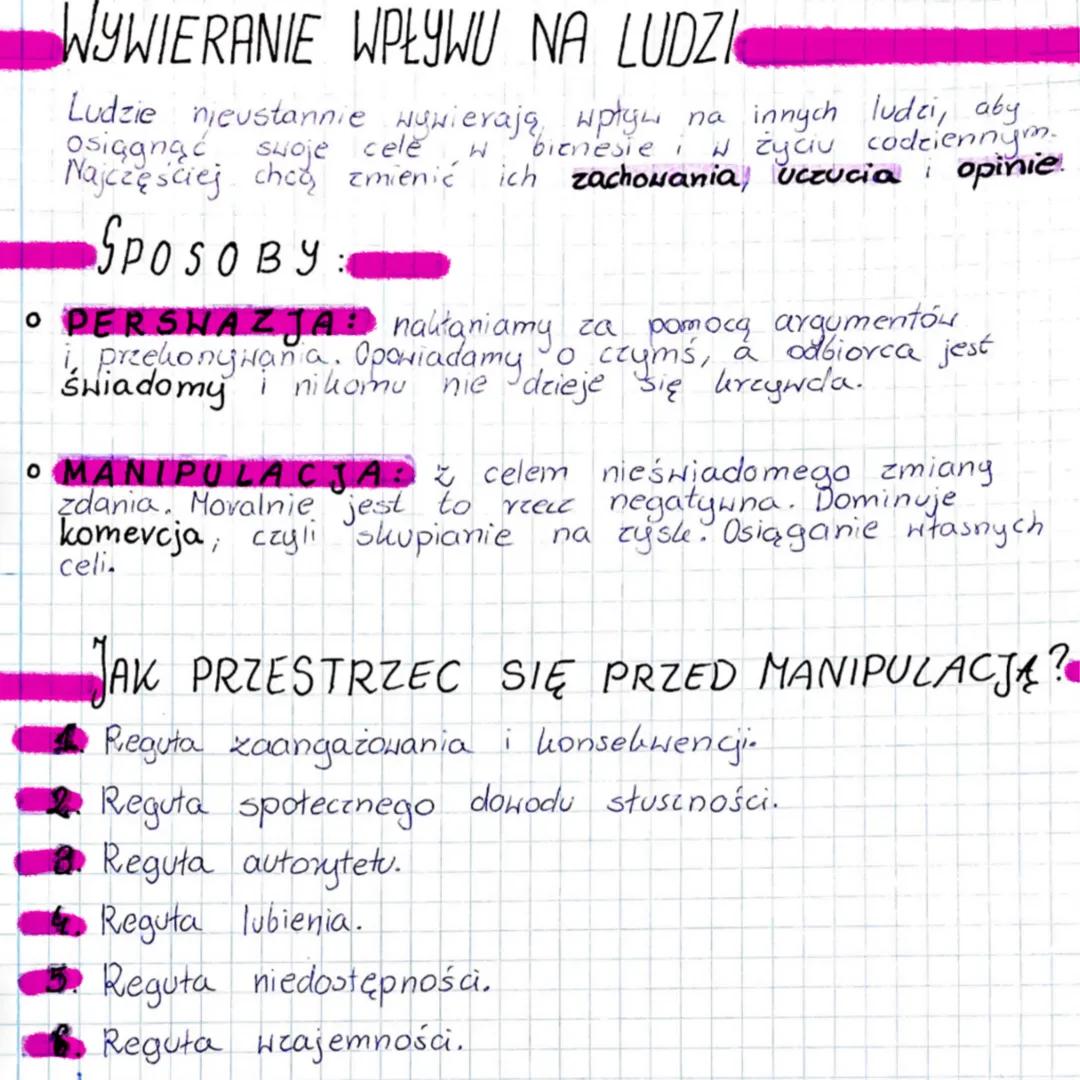 WYWIERANIE WPŁYWU NA LUDZI
Ludzie nieustannie wywierają wpływ na innych ludzi, aby
osiągnąć swoje cele w biznesie i w życiu codziennym.
Najczęściej chcą zmienić ich zachowania, uczucia i opinie.
SPOSOBY:
o PERSWAZJA: nakłaniamy za pomocą argumentów
i przekonywania. Opowiadamy o czymś, a odbiorca jest
świadomy i nikomu nie dzieje się krzywda.
o MANIPULACJA: z celem nieświadomego zmiany
zdania. Moralnie jest to rzecz negatywna. Dominuje
komercja, czyli skupianie na zysk. Osiąganie własnych
celi.
JAK PRZESTRZEC SIĘ PRZED MANIPULACJĄ?
1. Reguła zaangażowania i konsekwencji.
2. Reguła społecznego dowodu słuszności.
3. Reguła autorytetu.
4. Reguła lubienia.
5. Reguła niedostępności.
6. Reguła wzajemności.